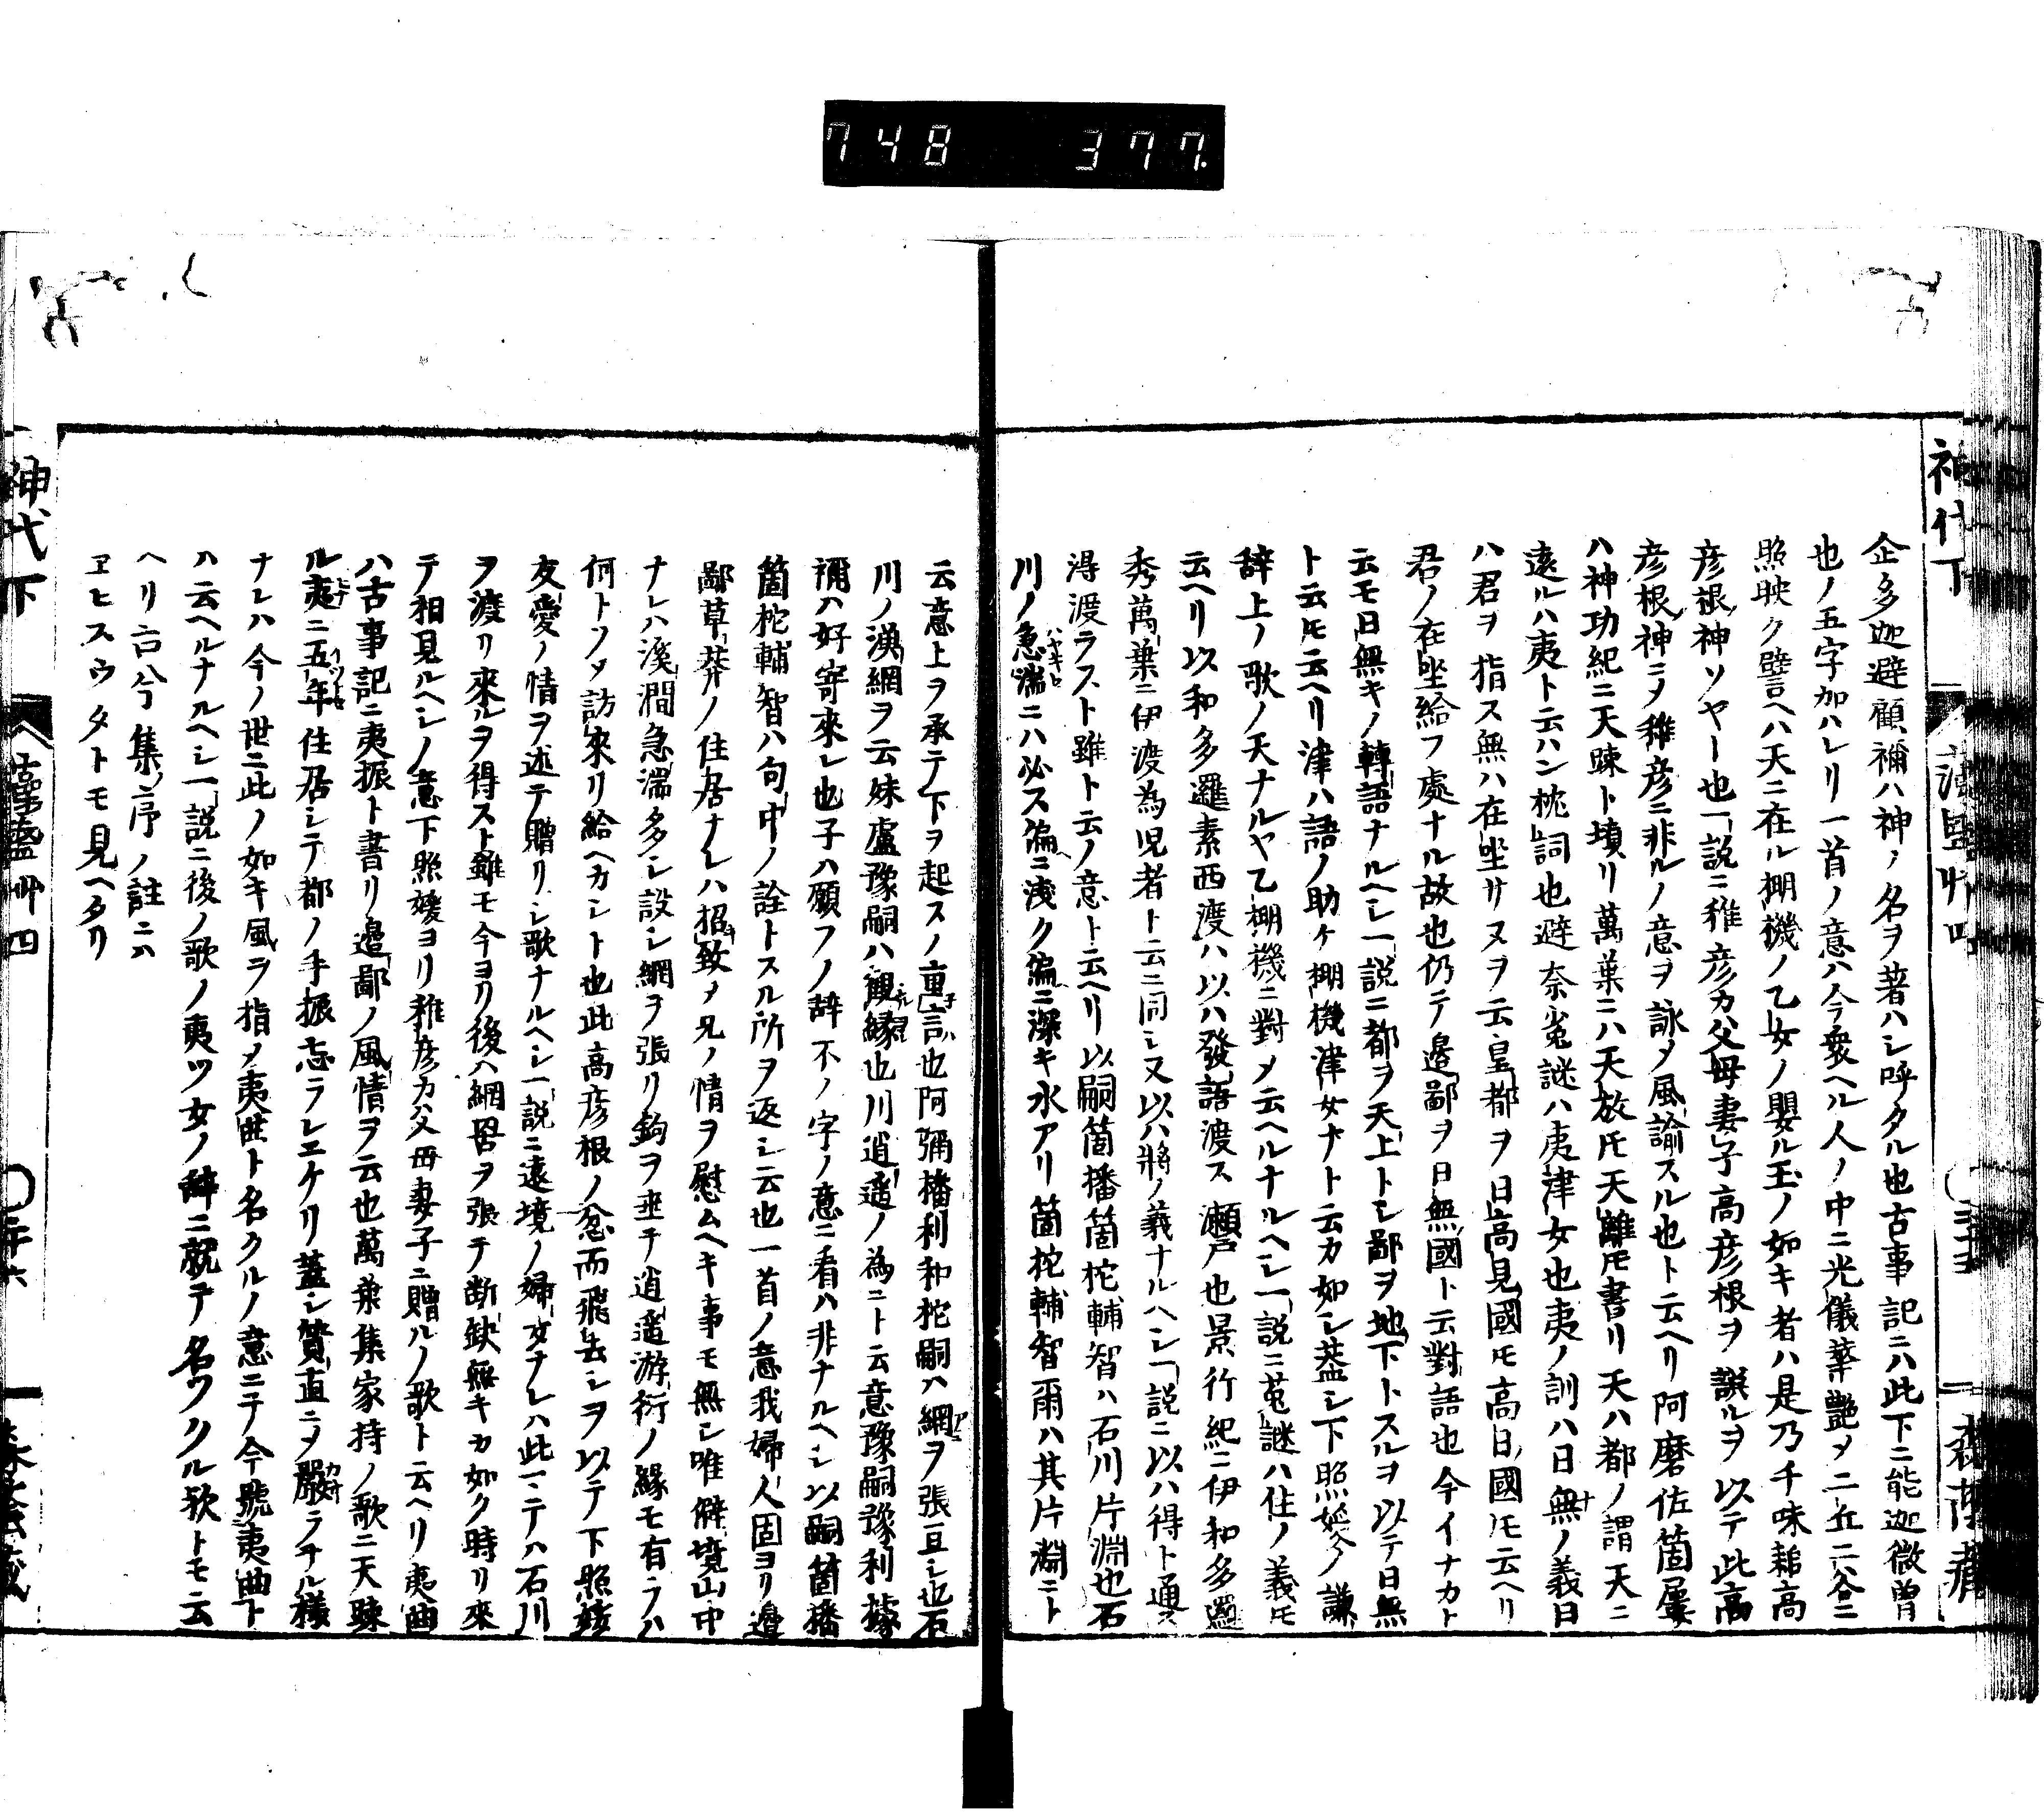 748 377.
神代下
企多迦避顧禰ハ神ノ名ヲ著ハシ呼タル也古事記ニハ此下ニ能迦微曽
也ノ五字加ハレリ一首ノ意ハ今衆ヘル人ノ中ニ光儀華艶メ二丘二谷ニ
照映ク譬ヘハ天ニ在ル棚機ノ乙女ノ嬰ル玉ノ如キ者ハ是乃チ味耜高
彦根神ソヤー也一説ニ稚彦カ父母妻子高彦根ヲ誤ルヲ以テ此高
彦根神ニメ稚彦ニ非ルノ意ヲ詠メ風諭スル也ト云ヘリ阿磨佐箇屢
ハ神功紀ニ天踈ト填リ萬葉ニハ天放トモ天離トモ書リ天ハ都ノ謂天ニ
遠ルハ夷ト云ハン枕詞也避奈菟謎ハ夷津女也夷ノ訓ハ日無ノ義日
ハ君ヲ指ス無ハ在坐サヌヲ云皇都ヲ日高見國トモ高日國トモ云ヘリ
君ノ在坐給フ處ナル故也仍テ邊鄙ヲ日無國ト云對語也今イナカト
云モ日無キノ轉語ナルヘシ一説ニ都ヲ天上トシ鄙ヲ地下トスルヲ以テ日無
ト云トモ云ヘリ津ハ語ノ助ケ棚機津女ナト云カ如シ蓋シ下照姫今ノ謙
辞上ノ歌ノ天ナルヤ乙棚機ニ對メ云ヘルナルヘシ一説ニ菟謎ハ住ノ義トモ
云ヘリ以和多邏素西渡ハ以ハ發語渡ス瀬戸也景行紀ニ伊和多邏
秀萬葉ニ伊渡為児者ト云ニ同シ又以ハ將ノ義ナルヘシ一説ニ以ハ得ト通ス
得渡ラスト雖ト云ノ意ト云ヘリ以嗣箇播箇柁輔智ハ石川片淵也石
川ノ急湍ニハ必ス偏ニ浅ク偏ニ深キ水アリ箇柁輔智爾ハ其片淵ニト
云意上ヲ承テ下ヲ起スノ重言也阿彌播利和柁嗣ハ網ヲ張亘シ也石
川ノ漁網ヲ云妹盧豫嗣ハ観縁也川逍遥ノ為ニト云意豫嗣豫利據
禰ハ好寄來レ也子ハ願フノ辞不ノ字ノ意ニ看ハ非ナルヘシ以嗣箇播
箇柁輔智ハ句中ノ詮トスル所ヲ返シ云也一首ノ意我婦人固ヨリ邉
鄙草莽ノ住居ナレハ招致メ兄ノ情ヲ慰ムヘキ事モ無シ唯僻境山中
ナレハ溪澗急湍多シ設シ網ヲ張リ鉤ヲ垂テ逍遥游衍ノ縁モ有ラハ
何トソメ訪來リ給ヘカシト也此高彦根ノ忿而飛去シヲ以テ下照姫
友愛ノ情ヲ述テ贈リシ歌ナルヘシ一説ニ遠境ノ婦女ナレハ此ニテハ石川
ヲ渡リ來ルヲ得スト雖モ今ヨリ後ハ網罟ヲ張テ断缺無キカ如ク時リ來
テ相見ルヘシノ意下照媛ヨリ稚彦カ父母妻子ニ贈ルノ歌ト云ヘリ夷曲
ハ古事記ニ夷振ト書リ邉鄙ノ風情ヲ云也萬葉集家持ノ歌ニ天踈
ル夷ニ五年住居シテ都ノ手振忘ラレエケリ蓋シ質直ニメ嚴ラナル様
ナレハ今ノ世ニ此ノ如キ風ヲ指メ夷曲ト名クルノ意ニテ今號夷曲ト
ハ云ヘルナルヘシ一説ニ後ノ歌ノ夷ツ女ノ辞ニ就テ名ツクル歟トモ云
ヘリ古今集ノ序ノ註ニハ
ヱヒスウタトモ見ヘタリ
神代下
藻鹽艸四